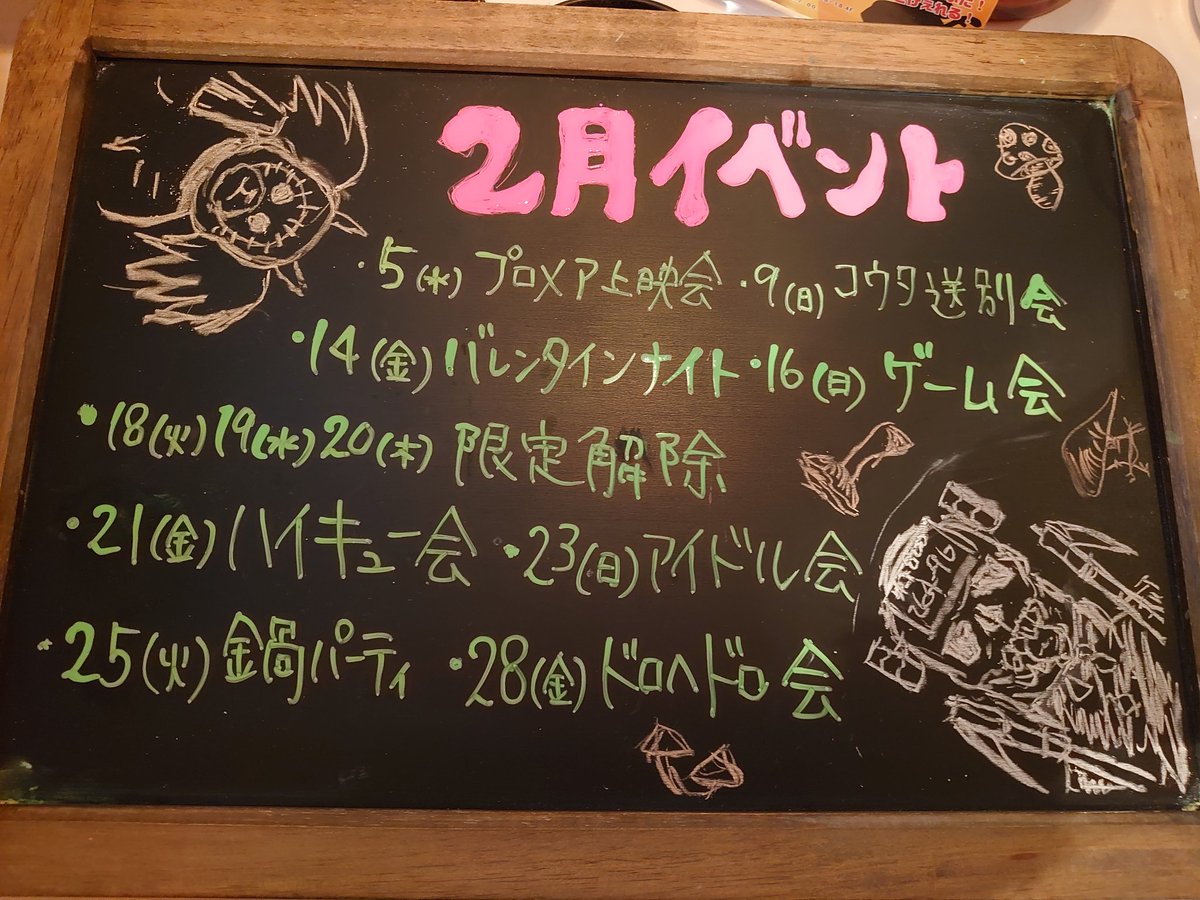 2月イベント
・5(水) プロメア上映会 ・9(日) コウタ送別会
・14(金) バレンタインナイト ・16(日) ゲーム会
・18(火) 19(水) 20(木) 限定解除
・21(金) ハイキュー会 ・23(日) アイドル会
・25(火) 鍋パーティ ・28(金) ドロヘドロ会